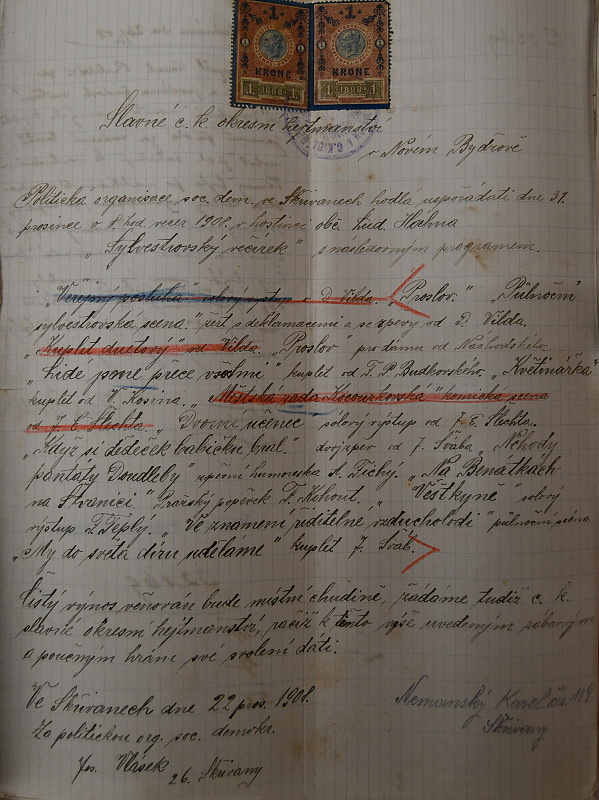 1 1
KRONE KRONE
1 1898 1 1 1898 1
Slavné c. k. okresní hejtmanství
v Novém Bydžově
Politická organisace soc. dem. ve Skřivanech hodlá uspořádati dne 31.
prosince o 8. hod. večer 1908. v hostinci obč. Lud. Háhna
„Sylvestrovský večírek" s následovným programem.
„Veřejný posluha" solový výstup o D. Vilda. „Proslov." „Půlnoční
sylvestrovská scena" žert s deklamacemi a se zpěvy od D. Vilda.
„Kuplet duetový" od Vilda. „Proslov" pro dámu od Náchodského.
„Lidé jsme přece všichni" kuplet od F. P. Budkovského. „Květinářka"
kuplet od V. Kosma. „Městská rada Kocourkovská" komická scena
od J. E. Šlechta. „Dvorní učenec" sólový výstup od J. E. Šlechta.
„Když si dědeček babičku bral." dvojzpěv od J. Šváb. „Nehody
pantáty Doudleby" humoreska A. Tichý. „Na Benátkách
na Štvanici." Pražský popěvek F. Kohout. „Věštkyně" solový
výstup F. Teplý. „Ve znamení řiditelné vzducholodi" půlnoční scéna
„My do světa díru uděláme" kuplet J. Šváb.
Čistý výnos věnován bude místní chudině, žádáme tudíž c. k.
slavné okresní hejtmanství, račiž k těmto výše uvedeným zábavným
a poučným hrám své svolení dáti.
Ve Skřivanech dne 22 pros. 1908.
Za politickou org. soc. demokr.
Jos. Vlásek
26. Skřivany
Karel
Skřivany